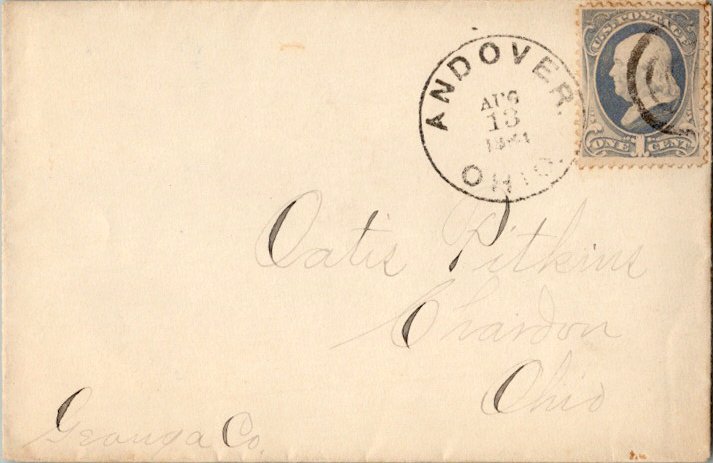 ANDOVER.
AUG
13
OHIO.
U.S. POSTAGE
ONE 1 CENT
Oatis Pitkins
Chardon
Ohio
Geauga Co.